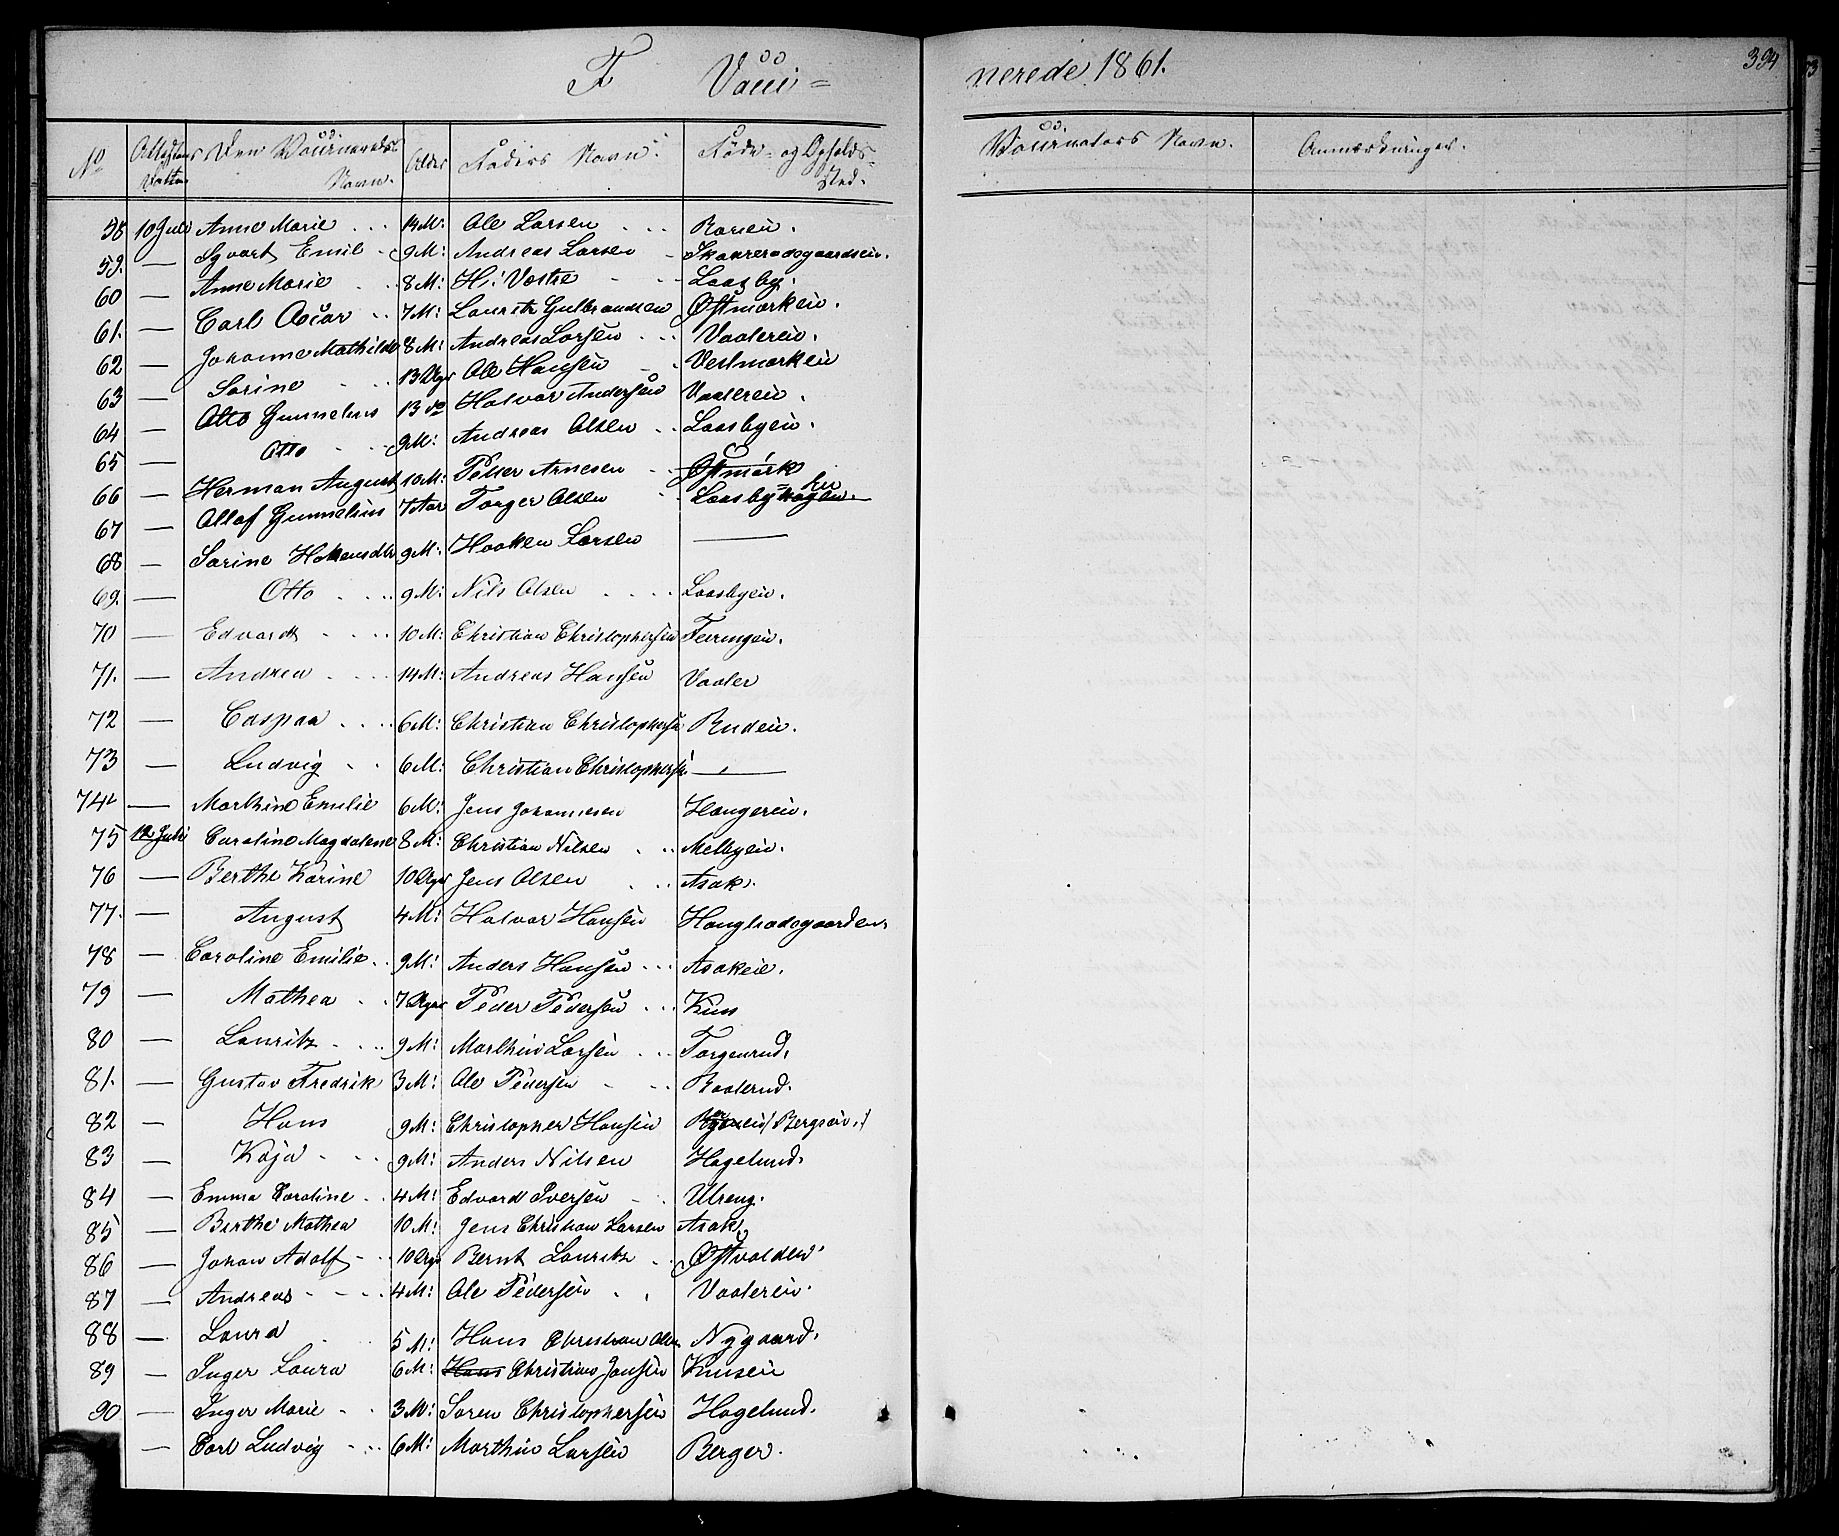 F Vacci=
nerede 1861.
394
No
Den Vaccineredes Navn.
Alder
Faders Navn.
Føde- og Opholds-Sted.
Vaccinators Navn.
Anmærkninger.
58 10 Juli Anne Marie 14 M: Ole Larsen
59. — Sgvart Emil 9 M: Andreas Larsen
60 — Anne Marie 8 M: Laasby.
61. — Carl Oscar 7 M: Lauritz Gulbrandsen Østmarken.
62 — Johanne Mathilde 8 M: Andreas Larsen Vaalerei.
63 — Sarine 13 Uger Ole Hansen Vestmarken
64 — Otto Gunnelius 13 do Halvor Andersen Vaalerei.
65 — Otto 9 M: Andreas Olsen Laasbyei.
66 — Herman August 10 M: Peder Arnesen Østmark
67 — Ollaf Gunnelius 7 Aar Torger Olsen
68 — Sarine 9 M: Haaken Larsen —
69. — Otto 9 M: Nils Olsen Laasbyei.
70 — Edvardt 10 M: Christian Christophersen
71. — Andrea 14 M: Andreas Hansen Vaaler
72 — Caspar 6 M: Christian Christophersen Rudei.
73 — Ludvig 6 M: Christian Christophersen —
74 — Marthine Emilie 6 M: Jens Johannesen Haugerei.
75 12 Juli Caroline Magdalene 8 M: Christian Nilsen Melbyei.
76 — Berthe Karine 10 Uger Jens Olsen Asak.
77. — August 4 M: Halvor Hansen
78 — Caroline Emilie 9 M: Anders Hansen Asakeie.
79 — Mathea 7 Uger Peder Pedersen
80 — Lauritz 9 M: Marthin Larsen Torgenrud.
81. — Gustav Fredrik 3 M: Ole Pedersen
82 — Hans 9 M: Christopher Hansen
83 — Kaja 9 M: Anders Nilsen Hagelund.
84 — Emma Caroline 4 M: Edvard Iversen Ulreng.
85 — Berthe Mathea 10 M: Jens Christian Larsen Asak.
86 — Johan Adolf 10 Uger Bernt Lauritz Østvolden
87 — Andreas 4 M: Ole Pedersen Vaalerei.
88 — Laura 5 M: Hans Christian Olsen Nygaard.
89 — Inger Laura 6 M: Hans Christian Jansen
90 — Inger Marie 3 M: Soren Christophersen Hagelund.
— Carl Ludvig 6 M: Marthin Larsen Berger.